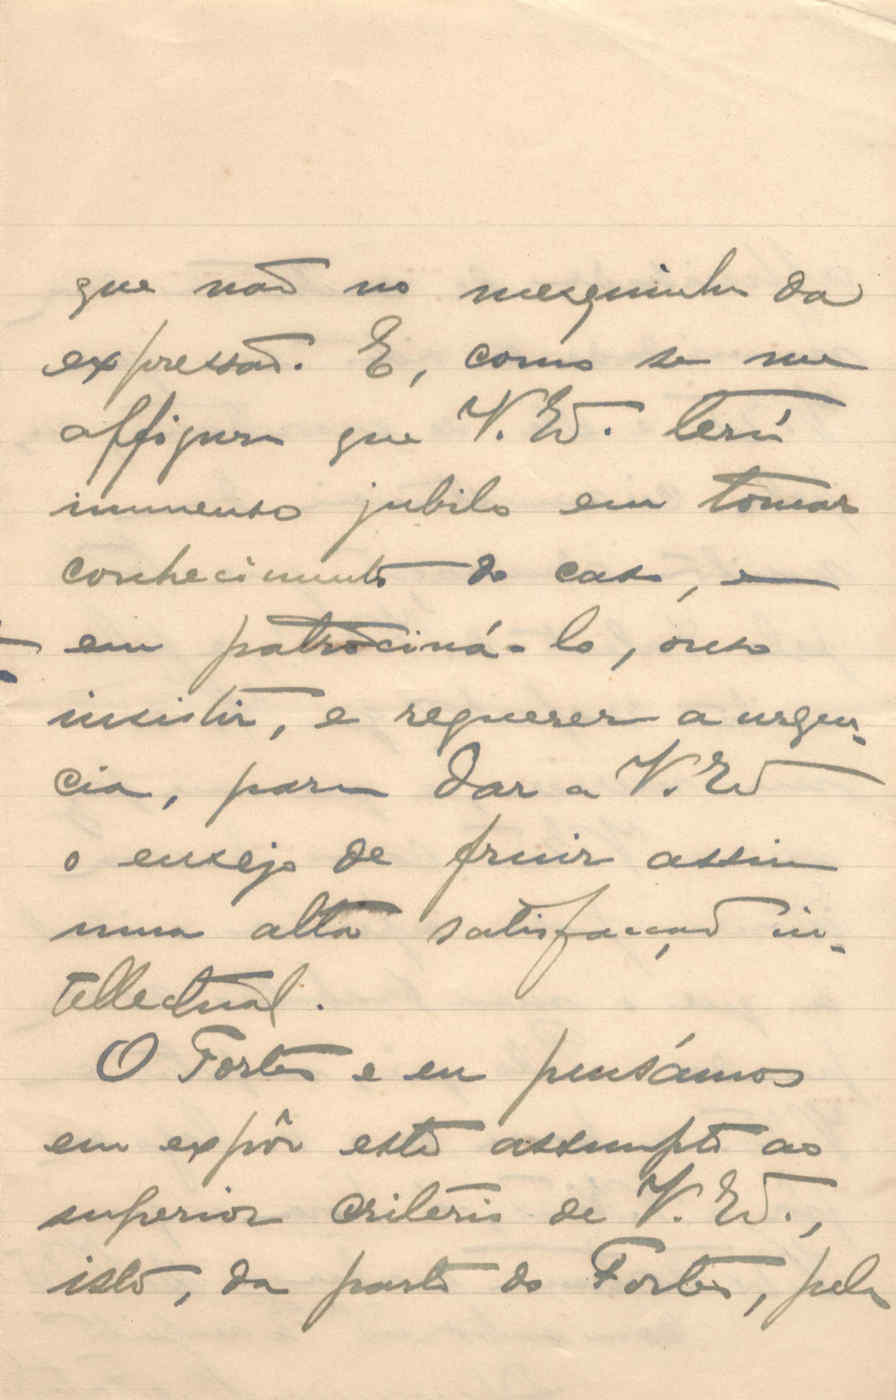 que não no mesquinho da
expressão. E, como se me
affigura que V. Ex.ª terá
immenso jubilo em tomar
conhecimento do caso, e
em patrociná-lo, ouso
insistir, e requerer a urgen-
cia, para dar a V. Ex.ª
o ensejo de fruir assim
uma alta satisfacção in-
tellectual.
O Fortes e eu pensámos
em expôr este assumpto ao
superior criterio de V. Ex.ª,
isto, da parte do Fortes, pela